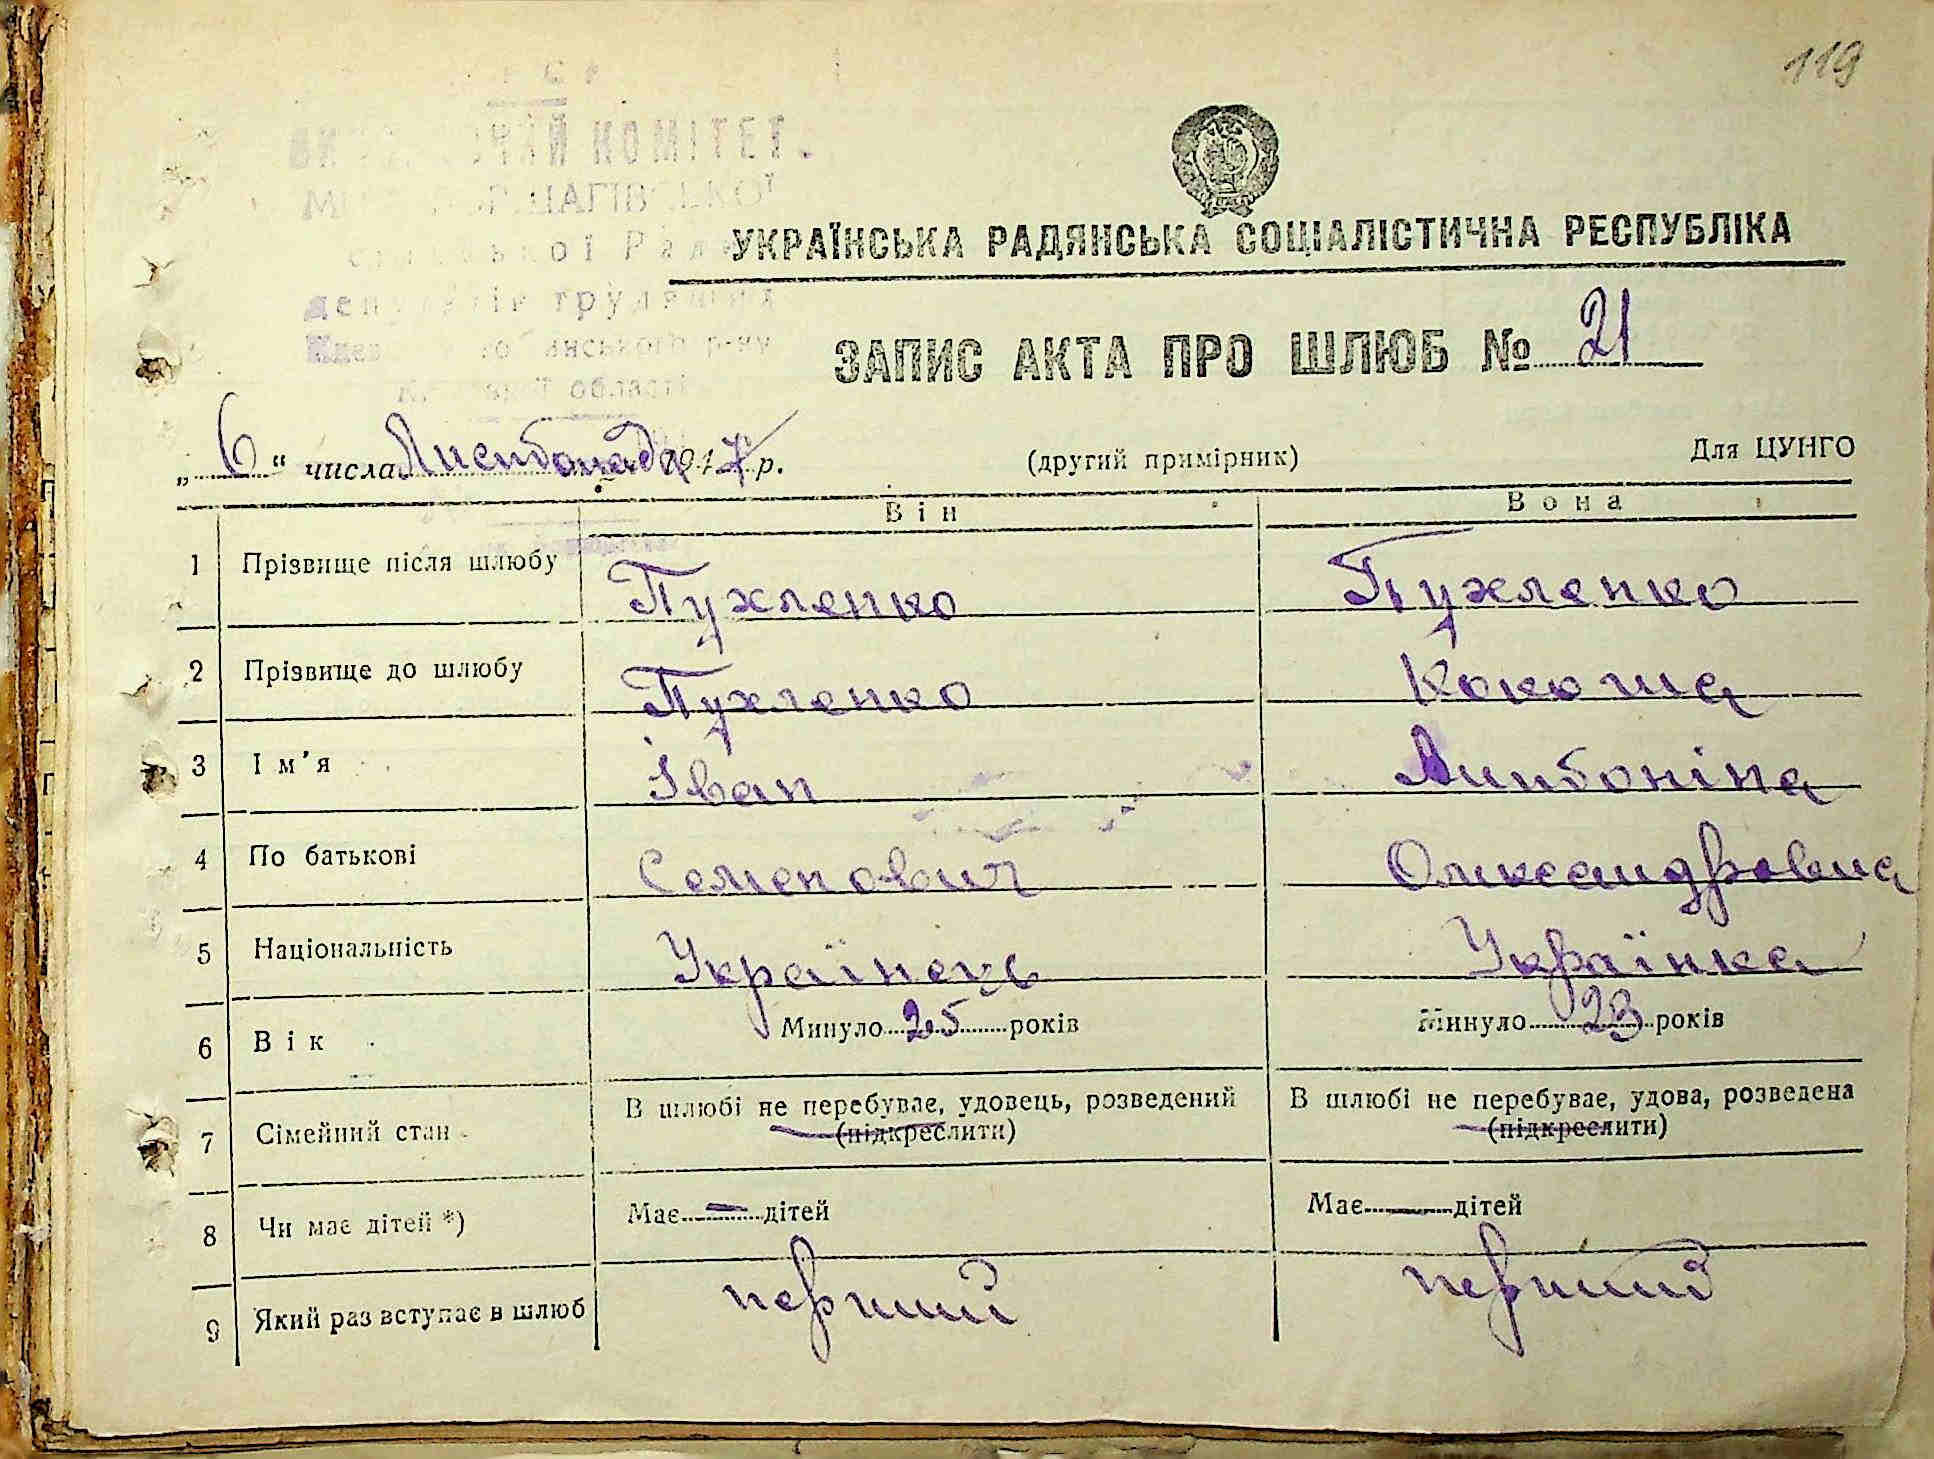 119
КОМІТЕТ
УКРАЇНСЬКА РАДЯНСЬКА СОЦІАЛІСТИЧНА РЕСПУБЛІКА
ЗАПИС АКТА ПРО ШЛЮБ № 21
області
„6“ числа Листопада 1947 р. (другий примірник) Для ЦУНГО
Він Вона
1 Прізвище після шлюбу Пухленко Пухленко
2 Прізвище до шлюбу Пухленко Кокоша
3 Ім’я Іван Антоніна
4 По батькові Семенович Олександровна
5 Національність Українець Українка
6 Вік Минуло 25 років Минуло 23 років
7 Сімейний стан В шлюбі не перебуває, удовець, розведений В шлюбі не перебуває, удова, розведена
(підкреслити) (підкреслити)
8 Чи має дітей *) Має — дітей Має — дітей
9 Який раз вступає в шлюб перший перший